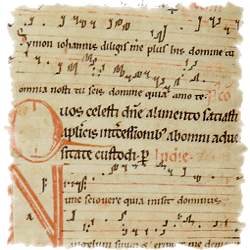 Symon iohannis diligis me plus his domine tu
omnia nosti tu scis domine quia amo te
Quos celesti dne alimento satiasti
aplicis intercessionib ab omni adue
sitate custodi p
Nunc scio vere quia misit dominus
angelum